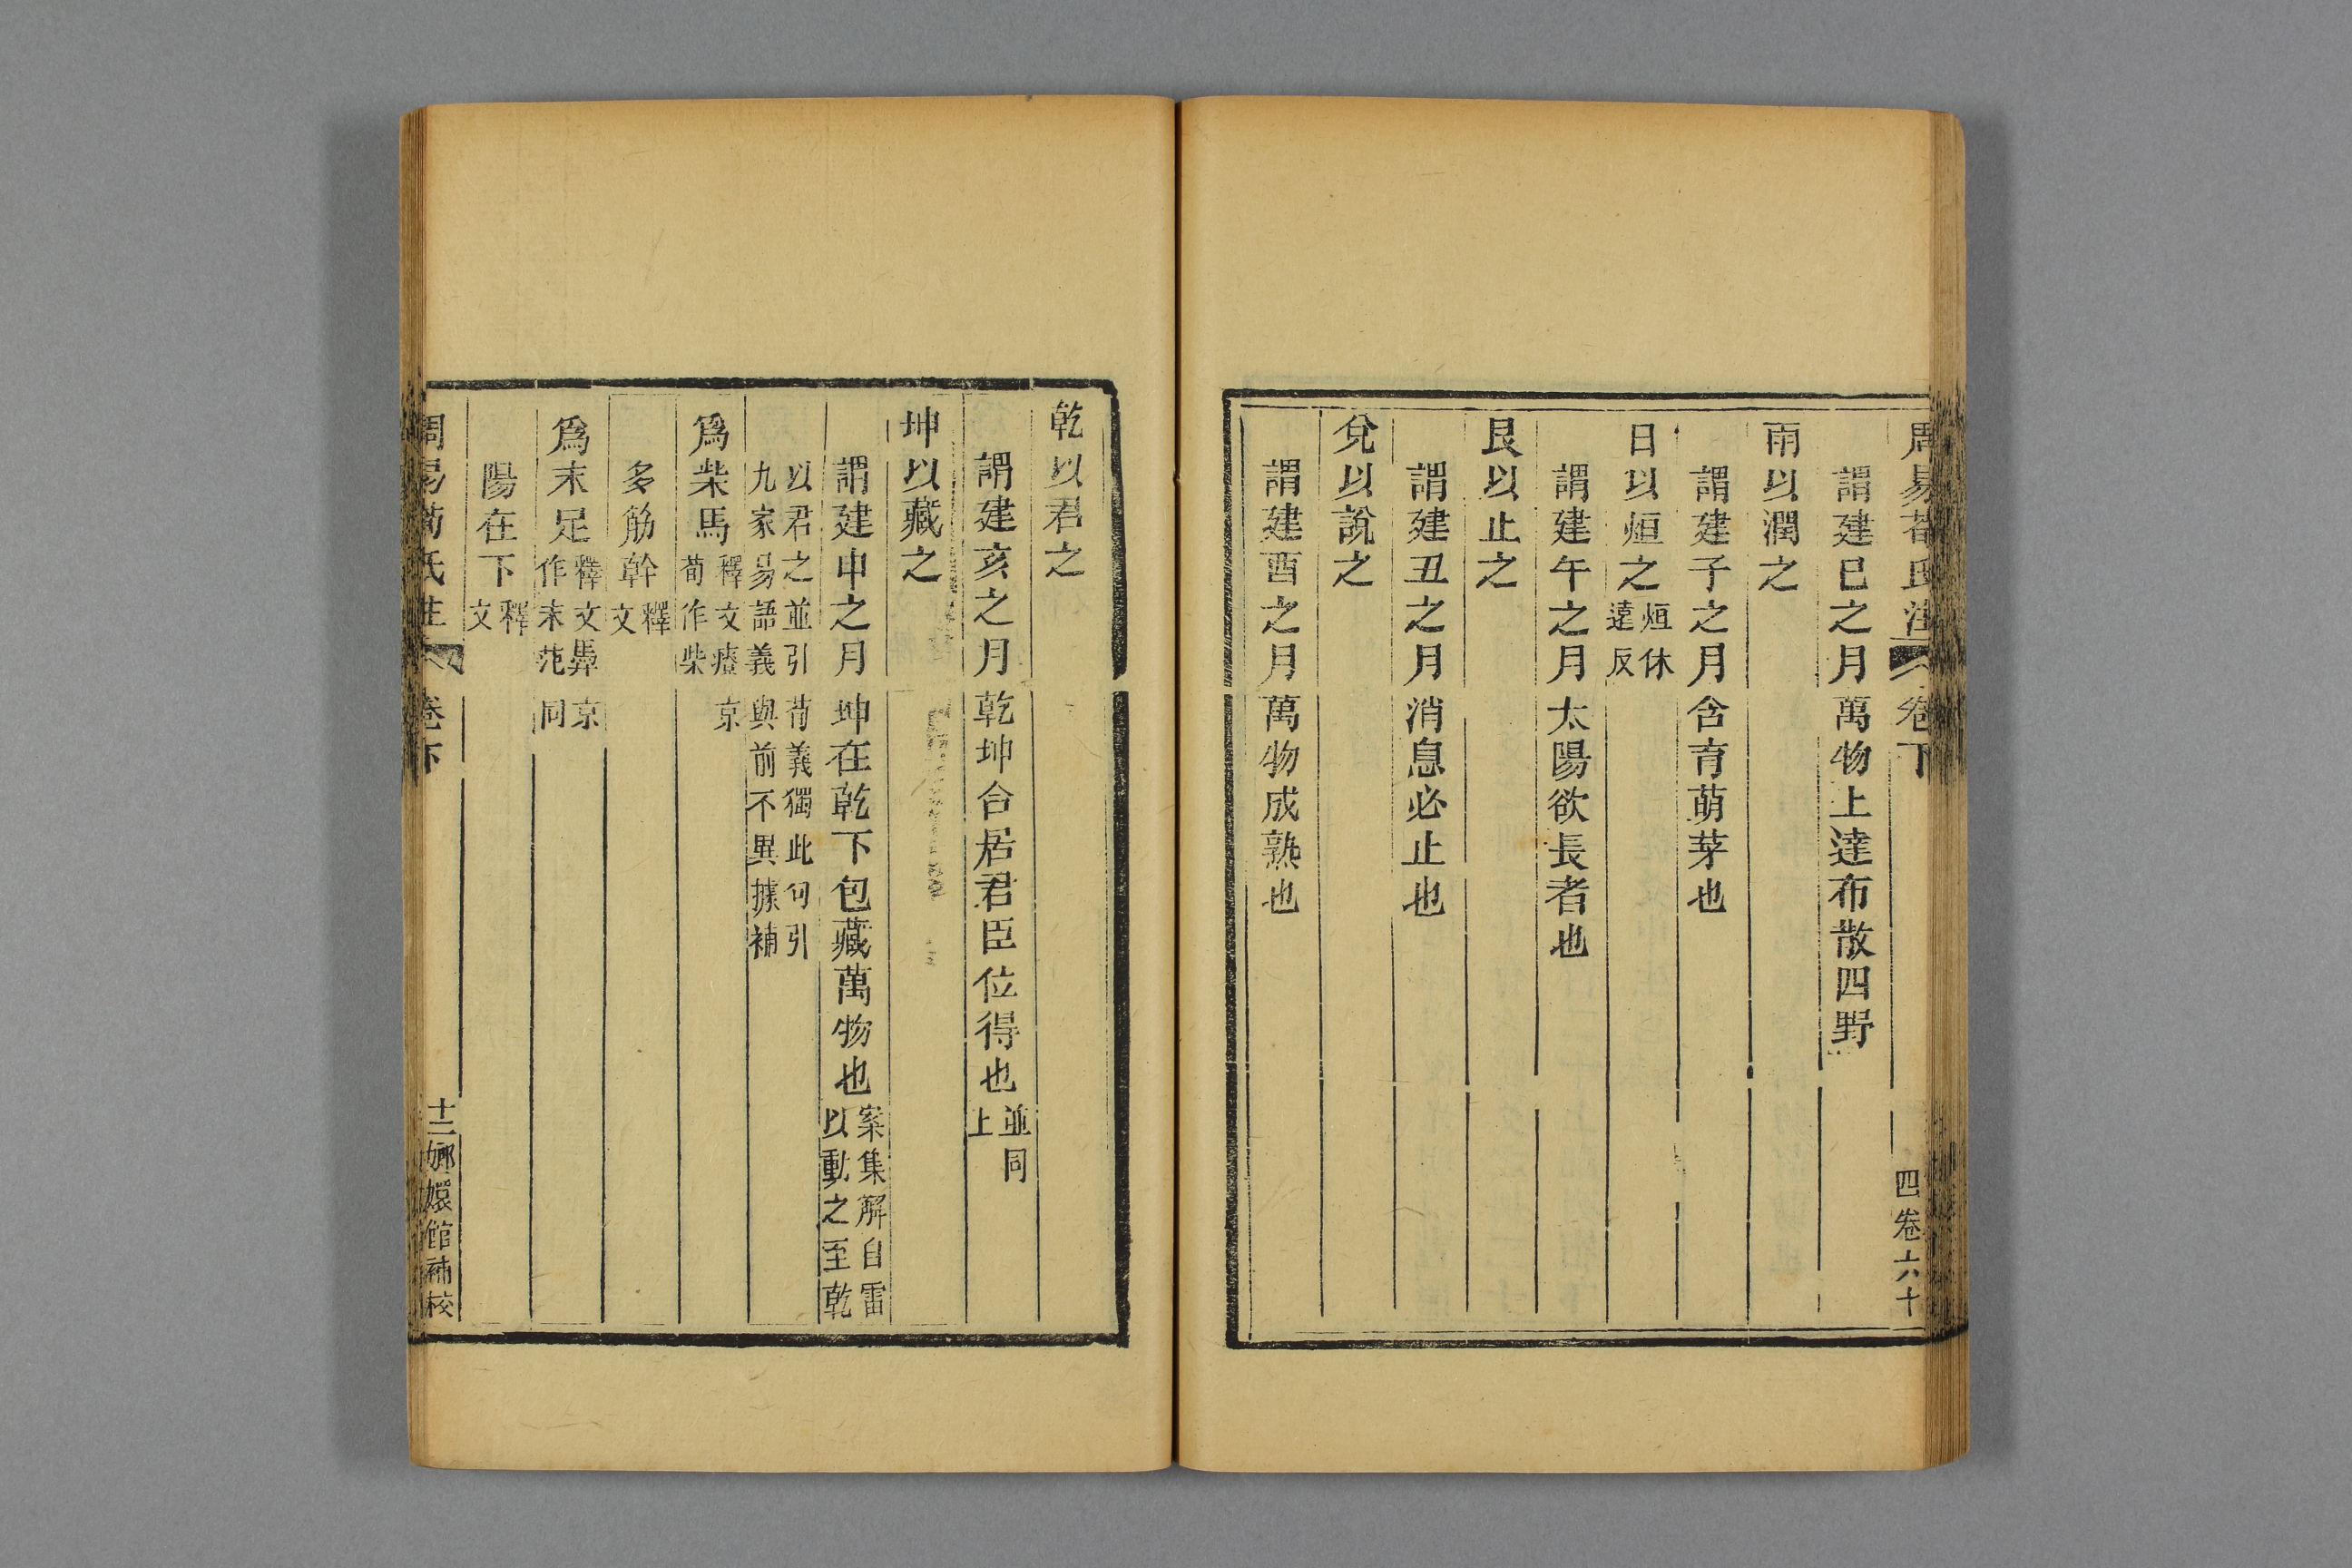 周易荀氏注 卷下 四卷六十
謂建巳之月萬物上達布散四野
雨以潤之
謂建子之月含育萌芽也
日以烜之烜休遠反
謂建午之月太陽欲長者也
艮以止之
謂建丑之月消息必止也
兌以說之
謂建酉之月萬物成熟也
乾以君之
謂建亥之月乾坤合居君臣位得也並同上
坤以藏之
謂建申之月坤在乾下包藏萬物也案集解自雷以動之至乾
以君之並引荀義獨此句引九家易語義與前不異據補
爲柴馬釋文瘠京荀作柴
多筋幹釋文
爲末足釋文馵京作末范同
陽在下釋文
周易荀氏注 卷下 十二 嫏嬛館補校